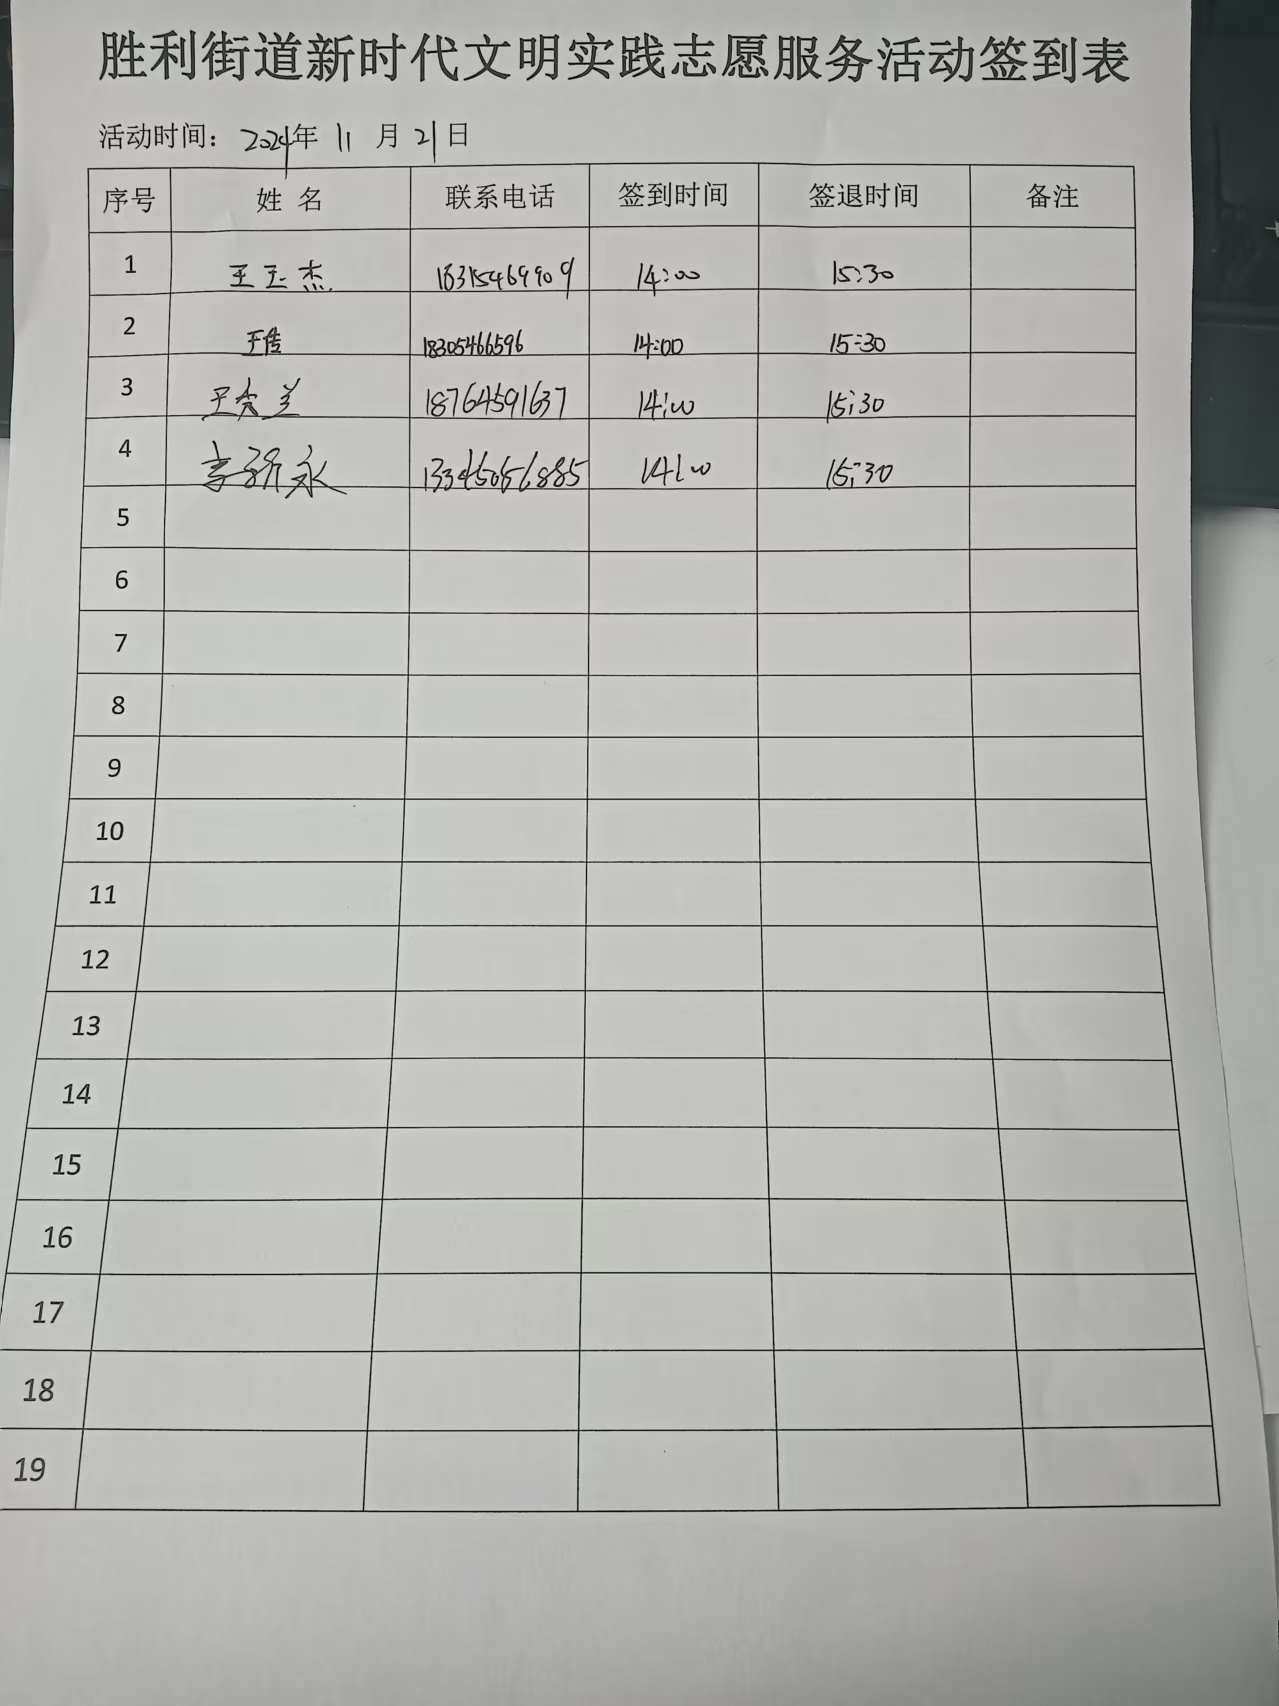 胜利街道新时代文明实践志愿服务活动签到表
活动时间： 2024年 11 月 21 日
序号 姓 名 联系电话 签到时间 签退时间 备注
1 王玉杰 18315469909 14:00 15:30
2 王倩 18305466596 14:00 15:30
3 王秀兰 18764591637 14:00 15:30
4 李 永 14:00 15:30
5
6
7
8
9
10
11
12
13
14
15
16
17
18
19